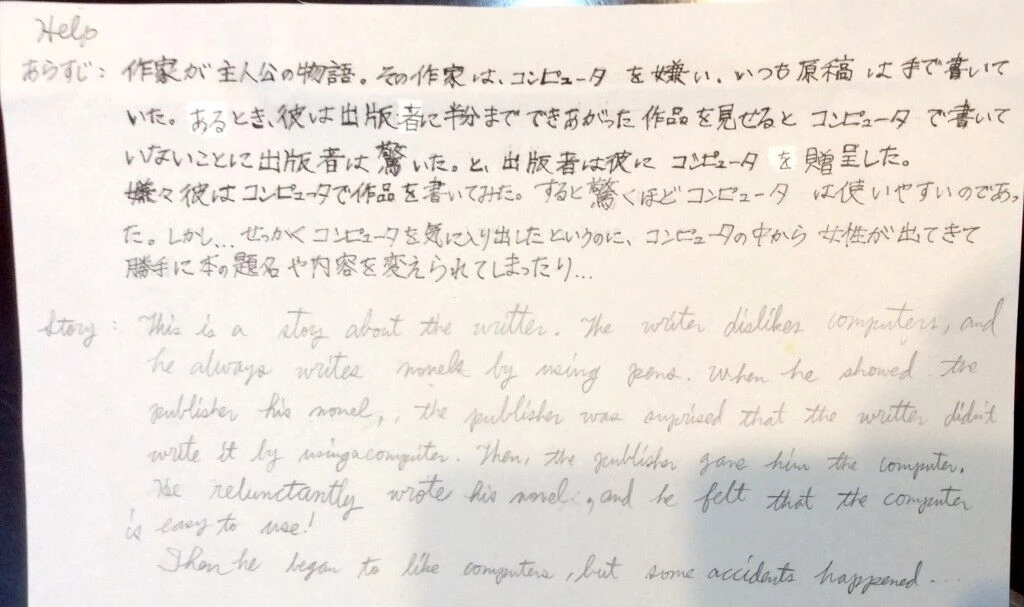 Help
あらすじ: 作家が主人公の物語。その作家は、コンピュータを嫌い、いつも原稿は手で書いて
いた。あるとき、彼は出版者に半分までできあがった作品を見せるとコンピュータで書いて
いないことに出版者は驚いた。と、出版者は彼にコンピュータを贈呈した。
嫌々彼はコンピュータで作品を書いてみた。すると驚くほどコンピュータは使いやすいのであっ
た。しかし...せっかくコンピュータを気に入り出したというのに、コンピュータの中から女性が出てきて
勝手に本の題名や内容を変えられてしまったり...
Story: This is a stoy about the writter. The writer dislikes computers, and
he always writes novels by using pens. When he showed the
publisher his novel,, the publisher was suprised that the writter didn't
write it by using a computer. Then, the publisher gave him the computer.
He relunctantly wrote his novel, and he felt that the computer
is easy to use!
Then he began to like computers, but some accidents happened....